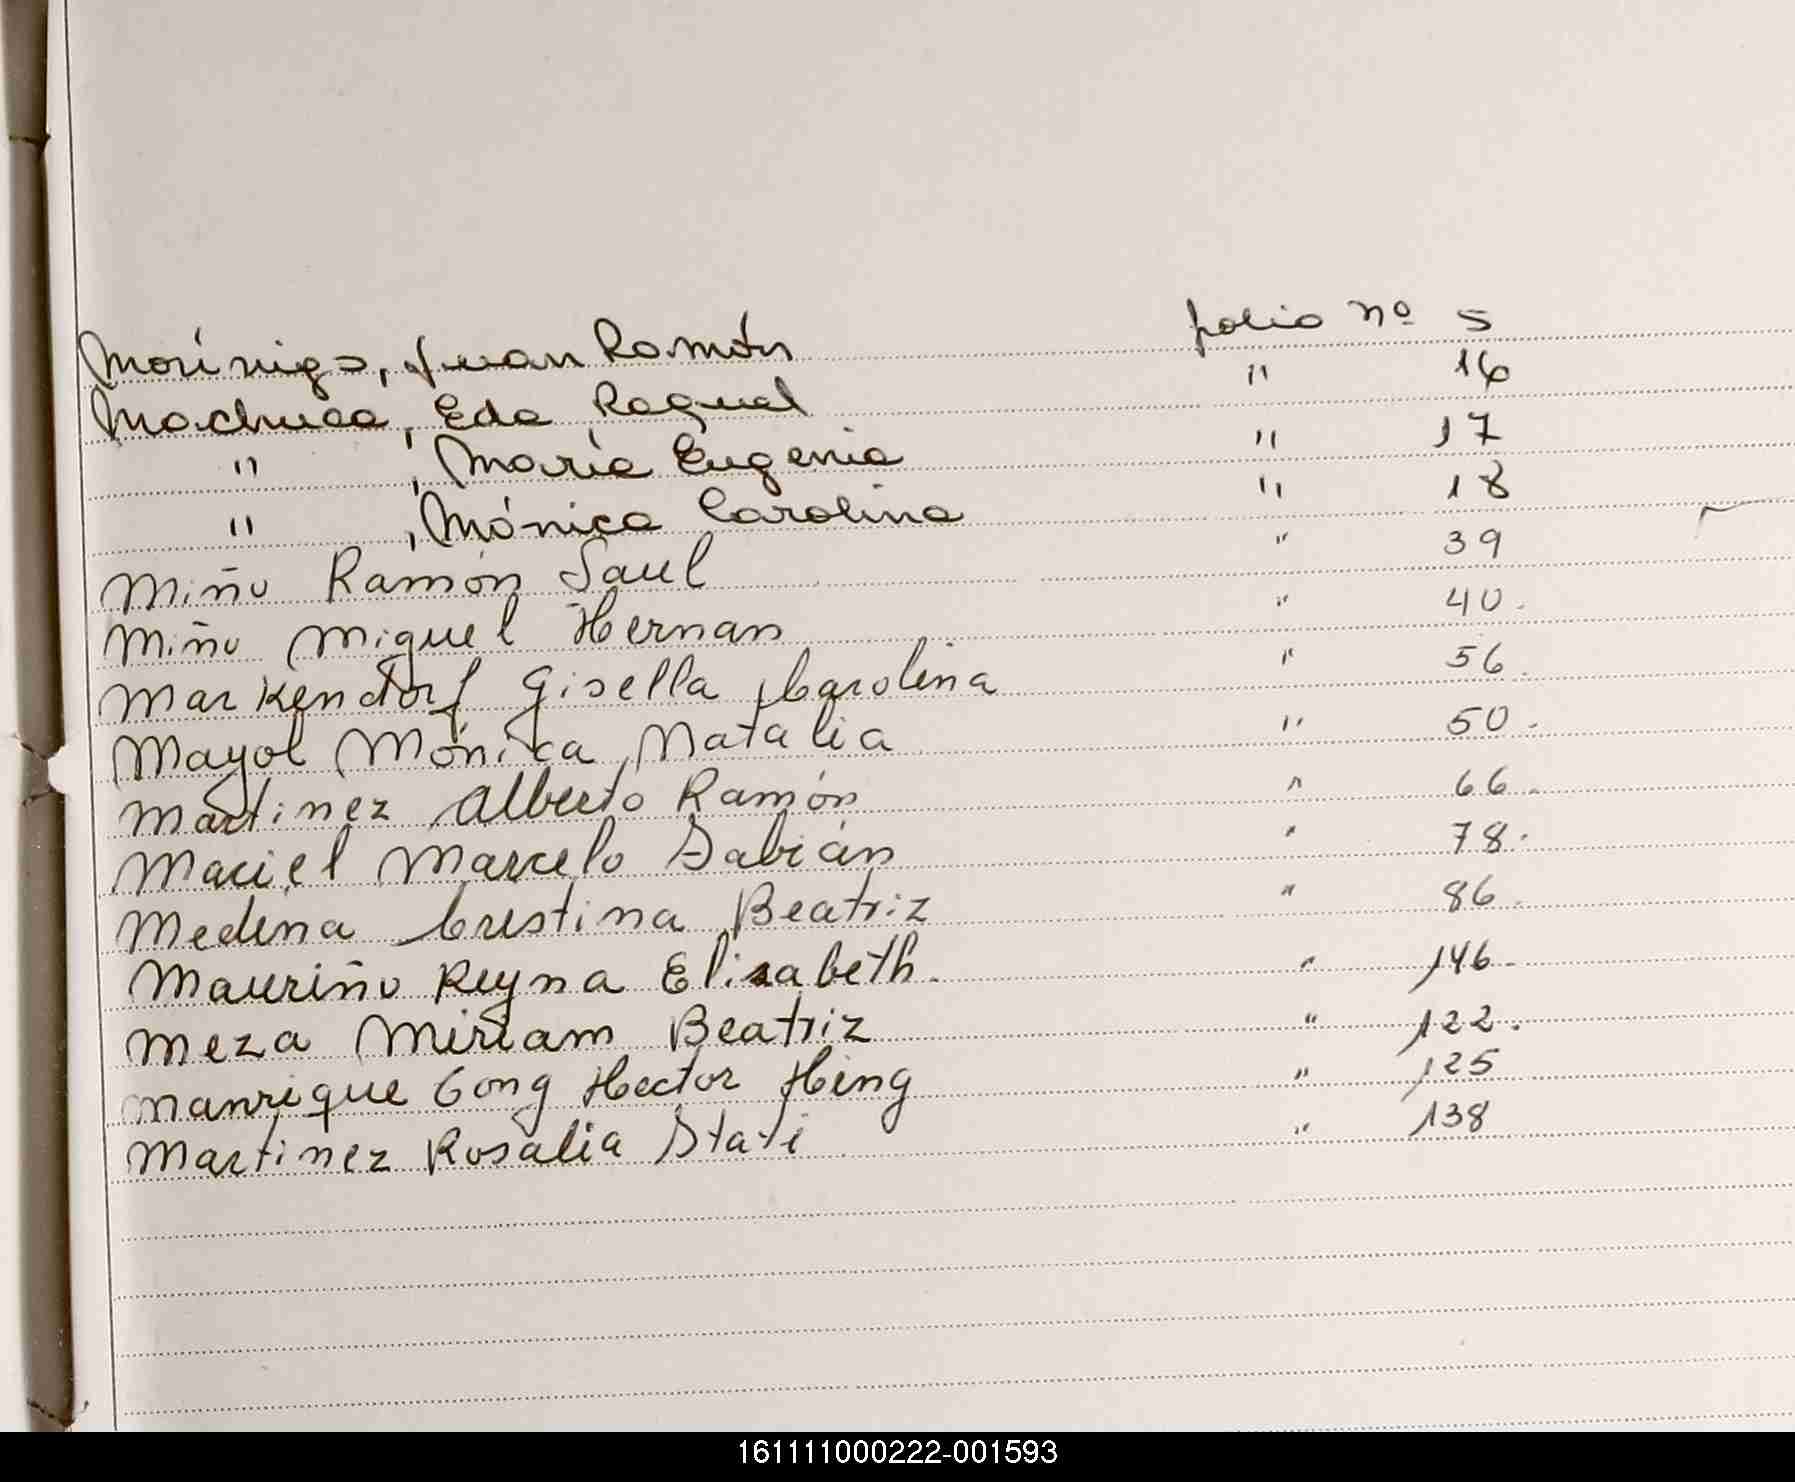 Morínigo, Juan Ramón folio nº 5
Machuca, Eda Raquel " 16
" , María Eugenia " 17
" , Mónica Carolina " 18
Miño Ramón Saul " 39
Miño Miguel Hernan " 40.
Markendorf Gisella Carolina " 56.
Mayol Mónica Natalia " 50.
Martinez Alberto Ramón " 66.
Maciel Marcelo Fabián " 78.
Medina Cristina Beatriz " 86.
Mauriño Reyna Elisabeth. " 146.
Meza Miriam Beatriz " 122.
Manrique Gong Hector Hing " 125
Martinez Rosalia Stati " 138
161111000222-001593